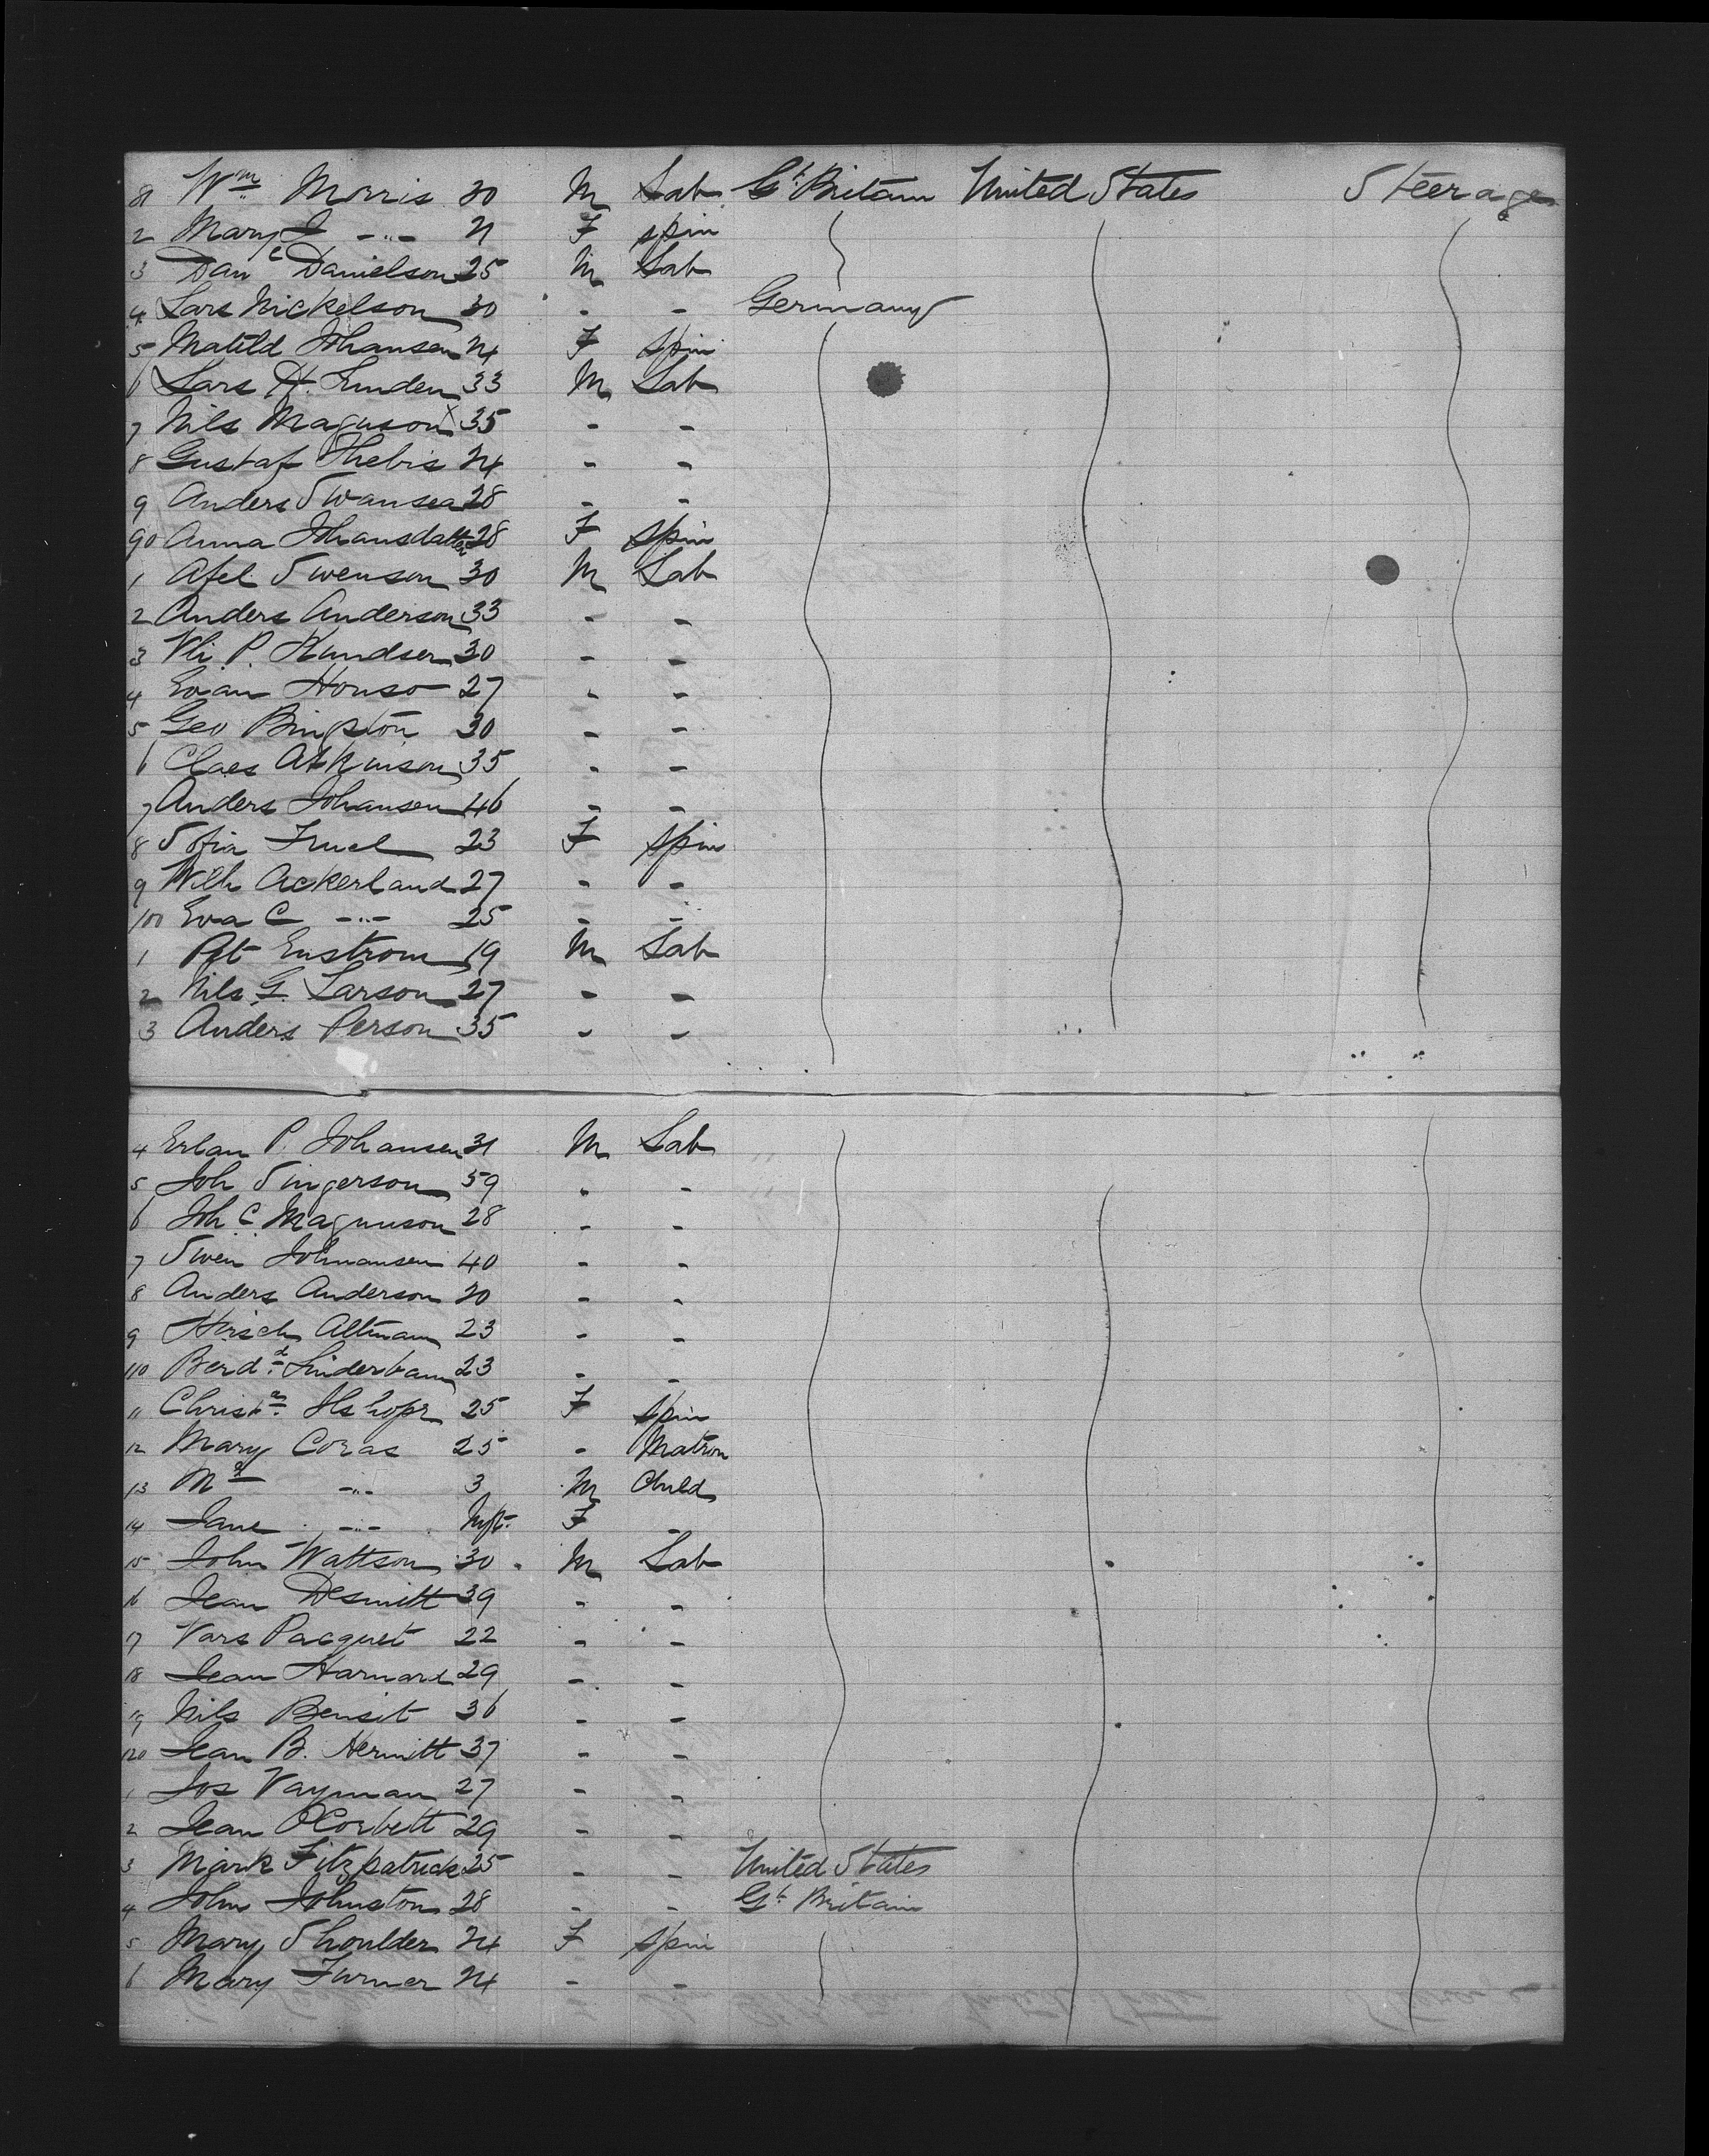 81 Wm Morris 30 M Lab Gt Britain United States Steerage
2 Mary J -"- 21 F Spin
3 Danl Danielson 25 M Lab
4 Lars Nickelson 30 - - Germany
5 Matild Johansen 24 F Spin
6 Lars H. Linden 33 M Lab
7 Nils Magnson x 35 - -
8 Gustaf Thebis 24 - -
9 Anders Swansea 28 - -
90 Anna Johansdatter 28 F Spin
1 Axel Swenson 30 M Lab
2 Anders Anderson 33 - -
3 P. Knudsen 30 - -
4 Evan Honso 27 - -
5 Geo Bingston 30 - -
6 Claes Atkinson 35 - -
7 Anders Johansen 46 - -
8 Sofia 23 F Spin
9 Wilh Ackerland 27 - -
100 Eva C -"- 25 - -
1 Pet Enstrom 19 M Lab
2 Nils G. Larson 27 - -
3 Anders Person 35 - -
4 Erlan P. Johansen 31 M Lab
5 Joh Singerson 59 - -
6 Joh C. Magnuson 28 - -
7 Swen Johnansen 40 - -
8 Anders Anderson 20 - -
9 Hirsch Altman 23 - -
110 Berd Linderbaum 23 - -
11 Christn 25 F Spin
12 Mary Coras 25 - Matron
13 -"- 3 M Child
14 Jane -"- Inft. F -
15 John Wattson 30 M Lab
16 Jean Desmitt 39 - -
17 Vars Pacquet 22 - -
18 Jean Harnard 29 - -
19 Nils Bensit 36 - -
120 Jean B. Hermitt 37 - -
1 Jos Vayman 27 - -
2 Jean OCorbett 29 - -
3 Mark Fitzpatrick 25 - - United States
4 John Johnston 28 - - Gt Britain
5 Mary Shoulder 24 F Spin
6 Mary Turner 24 - -